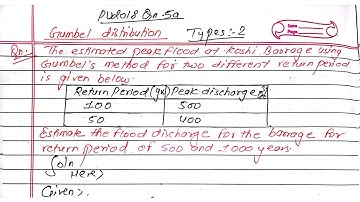 PU2018 Qn. 5a
Gumbel distribution Types:-2
Qn:- The estimated peak flood at Koshi Barrage using
Gumbel's method for two different return period
is given below.
Return Period (yr) Peak discharge
100 500
50 400
Estimate the flood discharge for the barrage for
return period of 500 and 1000 years.
Soln
Here,
Given: